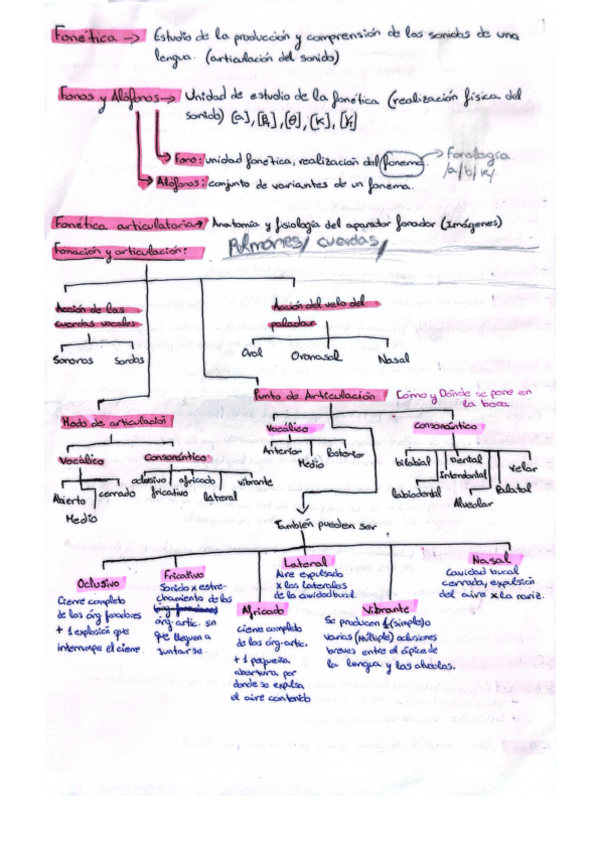 Fonética -> Estudio de la producción y comprensión de los sonidos de una
lengua. (articulación del sonido)
Fonos y Alófonos -> Unidad de estudio de la fonética (realización física del
sonido) [a], [θ], [k],
Fono: unidad fonética, realización del fonema. -> Fonología
/a/b/k/
Alófonos: conjunto de variantes de un fonema.
Fonética articulatoria -> Anatomía y fisiología del aparador fonador (Imágenes)
Fonación y articulación: Pulmones/ cuerdas/
Acción de las
cuerdas vocales
Sonoras Sordas
Acción del velo del
paladar
Oral Oronasal Nasal
Modo de articulación
Vocálico
Abierto cerrado
Medio
Consonántico
oclusivo africado vibrante
fricativo lateral
Punto de Articulación Cómo y Dónde se pone en
la boca
Vocálico
Anterior Posterior
Medio
consonántico
bilabial Dental Velar
Interdental
labiodental Palatal
Alveolar
También pueden ser
Oclusivo
Cierre completo
de los órg fonadores
+ 1 explosión que
interrumpe el cierre.
Fricativo
Sonido x estre-
chamiento de los
órg. artic. sin
que lleguen a
juntarse.
Africado
cierre completo
de los órg. artic.
+ 1 pequeña
abertura por
donde se expulsa
el aire contenido
Lateral
Aire expulsado
x los laterales
de la cavidad bucal.
Vibrante
Se producen 1 (simple) o
varias (múltiple) oclusiones
breves entre el ápice de
la lengua y los alveolos.
Nasal
Cavidad bucal
cerrada, expulsión
del aire x la nariz.